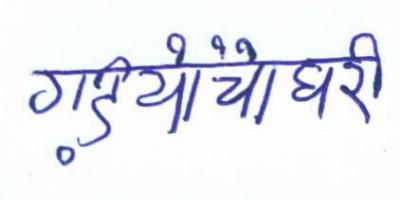 गड़यो चौधरी